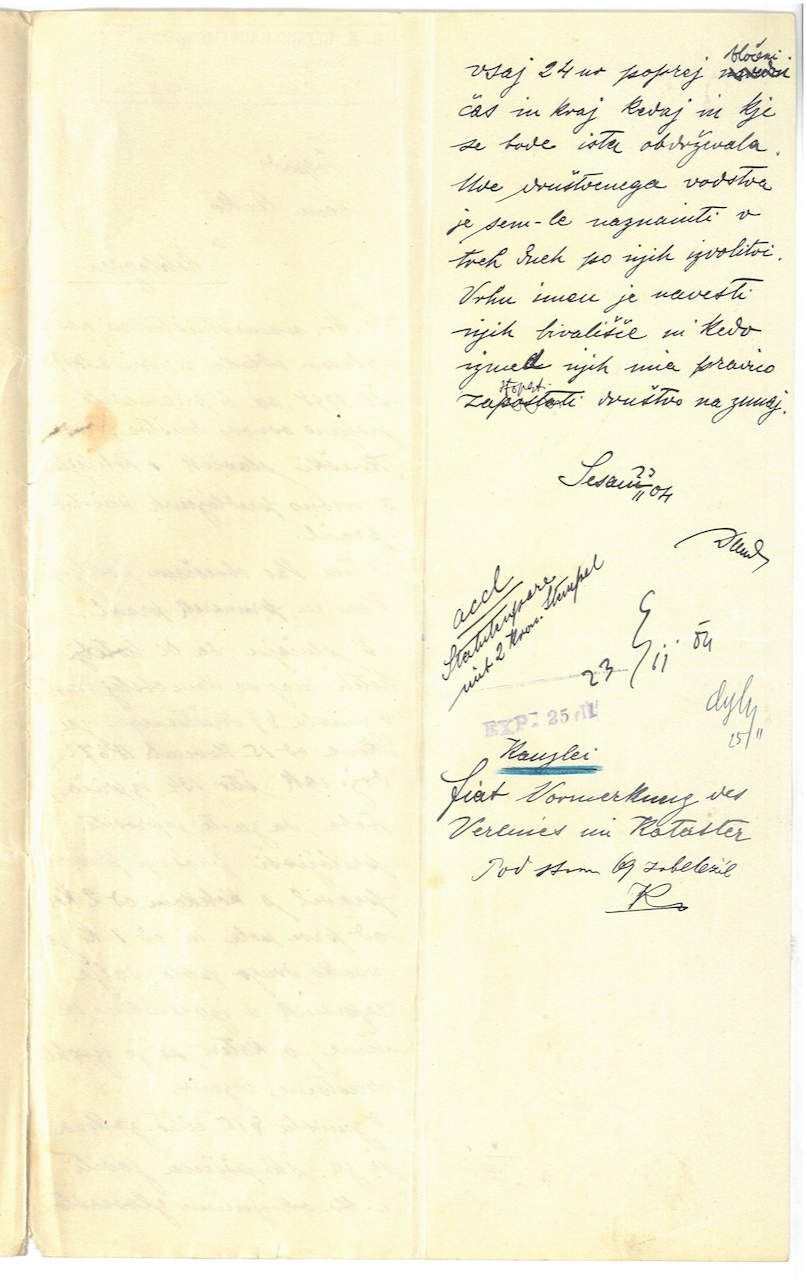 vsaj 24 ur poprej določeni
čas in kraj kedaj in kje
se bode ista obdrževala.
Ude društvenega vodstva
je sem-le naznaniti v
treh dneh po njih izvolitvi.
Vrhu imen je navesti
njih bivališče in kedo
izmed njih ima pravico
zastopati društvo na zunaj.
Sesana 23/II 04
accl
Statutenpare
mit 2 Kron. Stempel
23/II 04
EXP. 25/II
25/II
Kanzlei
fiat Vormerkung des
Vereines im Kataster
Pod štev 69 zabeležil